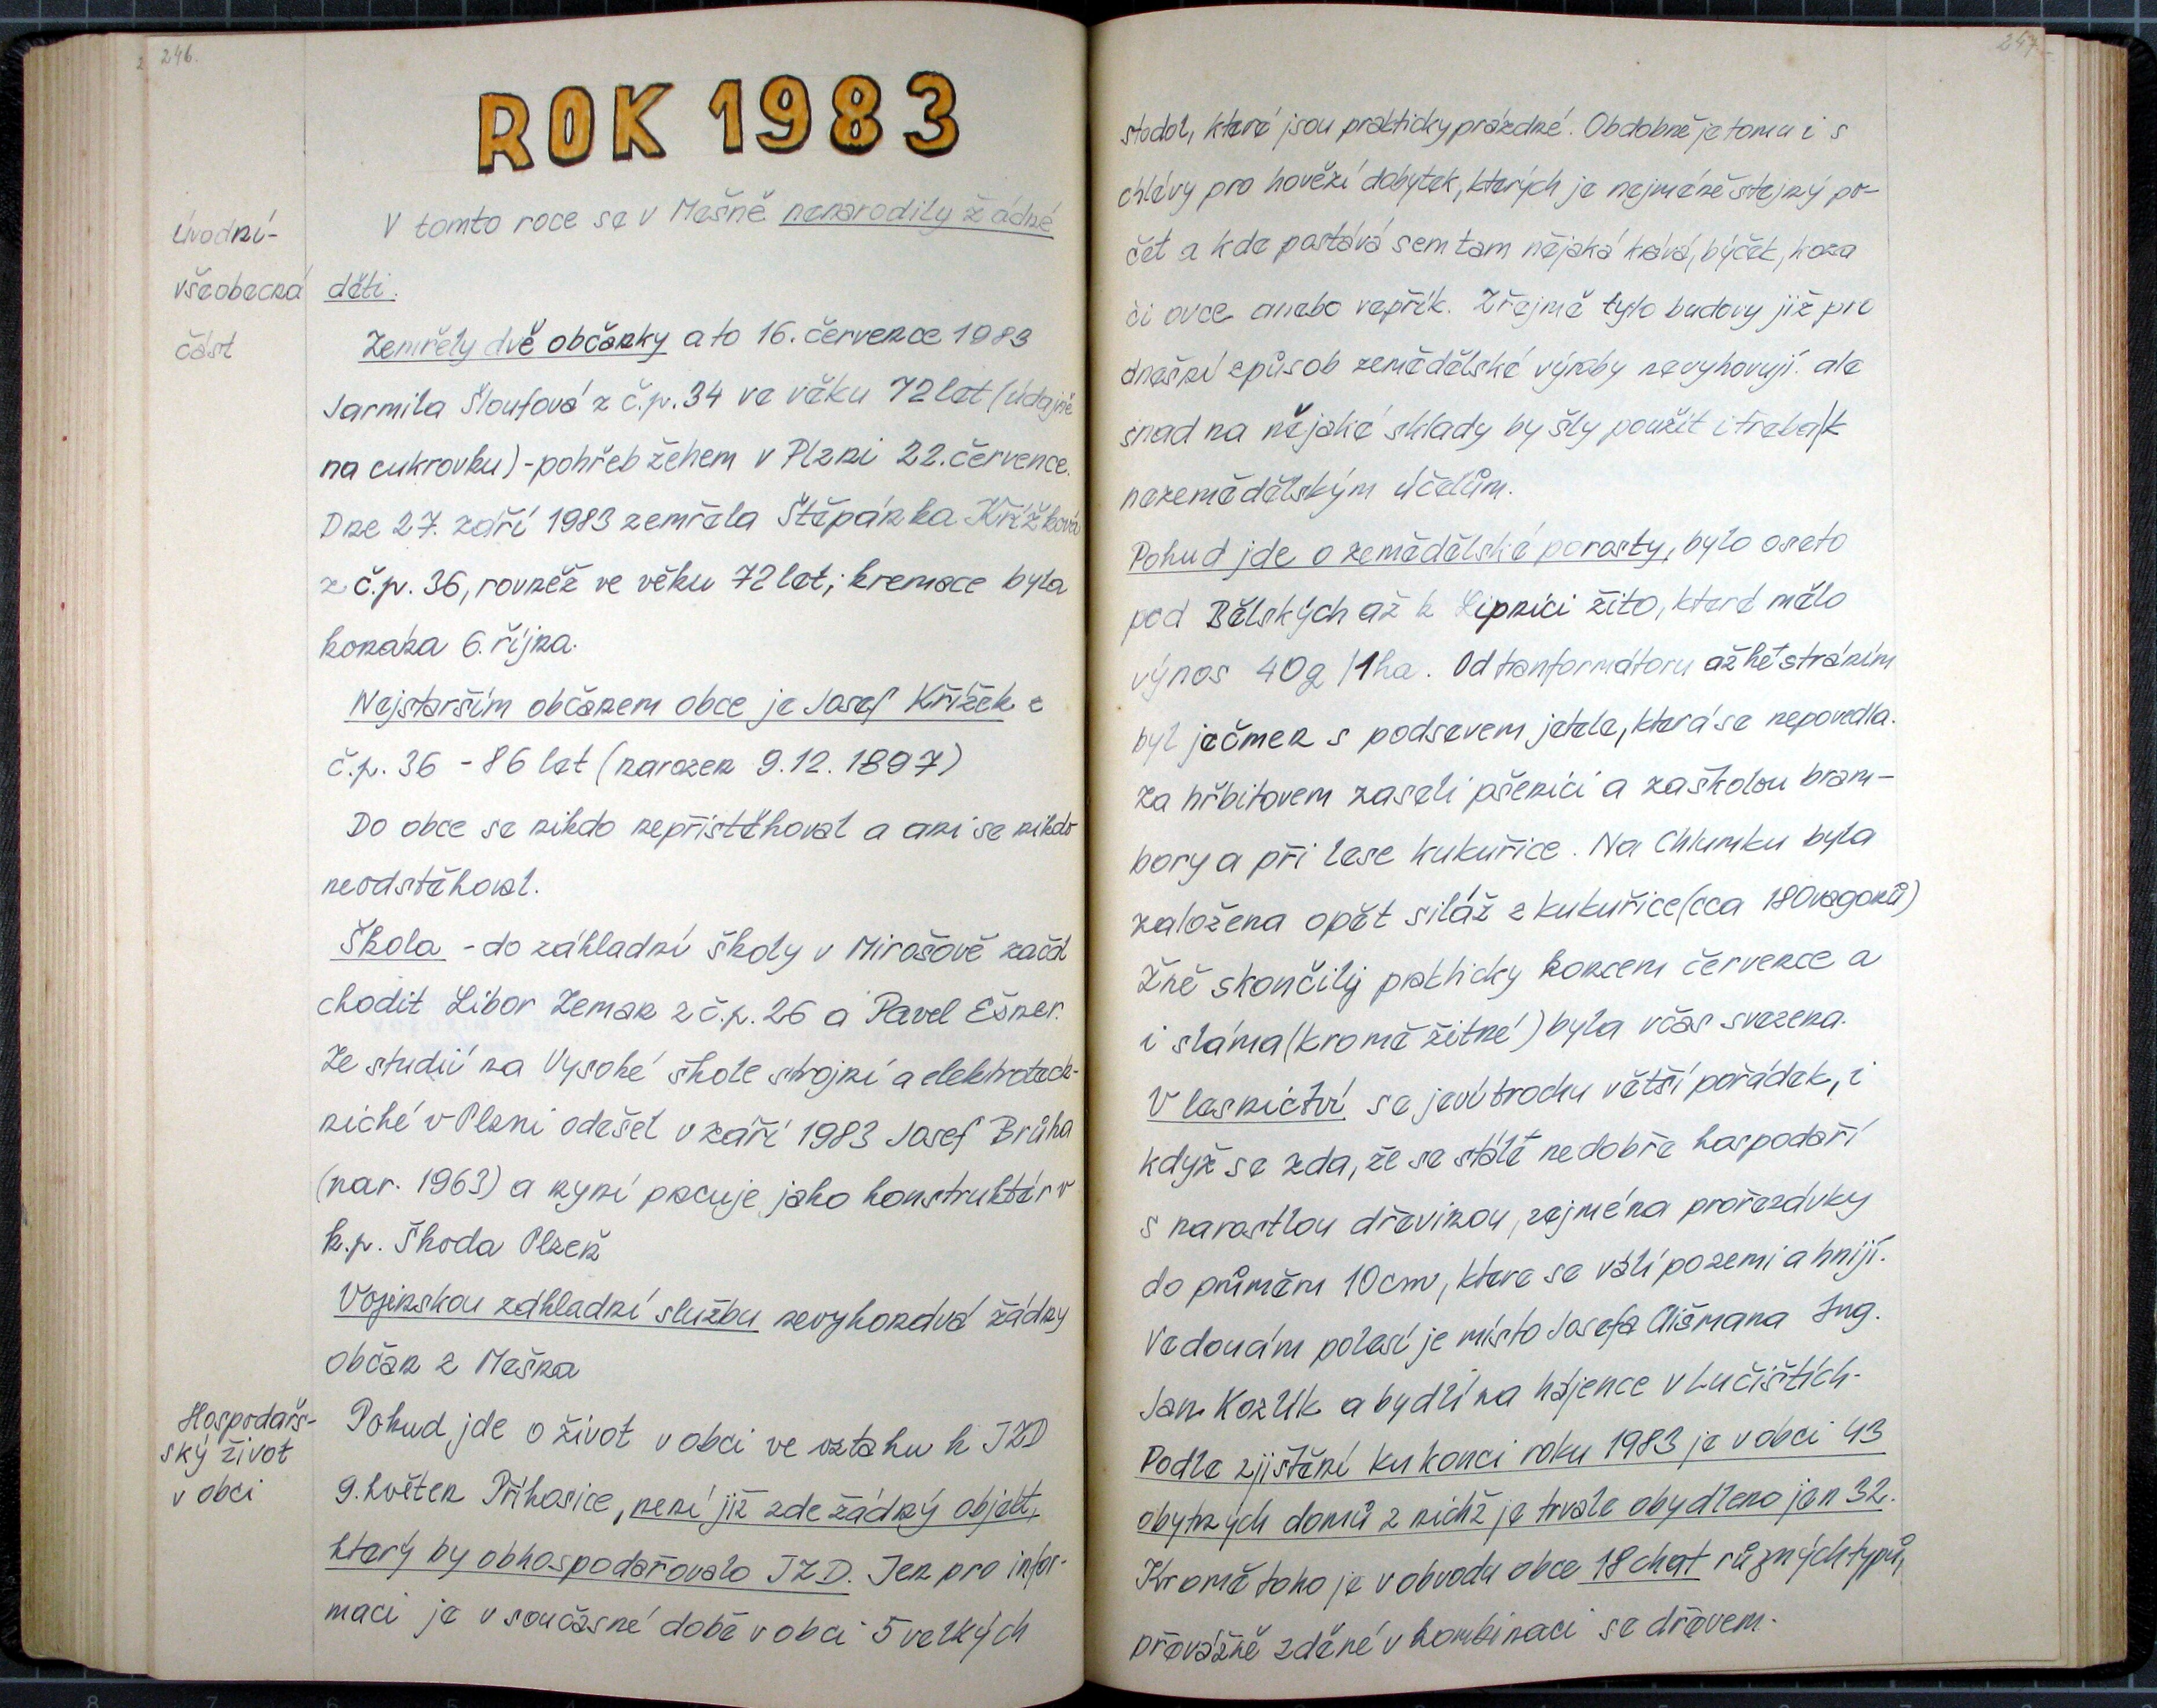 246.
ROK 1983
Úvodní-
všeobecná
část
V tomto roce se v Mešně nenarodily žádné
děti.
Zemřely dvě občanky a to 16. července 1983
Jarmila Šloufová z č.p. 34 ve věku 72 let (údajně
na cukrovku) - pohřeb žehem v Plzni 22. července.
Dne 27. září 1983 zemřela Štěpánka Křížková
z č.p. 36, rovněž ve věku 72 let; kremace byla
konána 6. října.
Nejstarším občanem obce je Josef Křížek z
č.p. 36 - 86 let (narozen 9.12.1897)
Do obce se nikdo nepřistěhoval a ani se nikdo
neodstěhoval.
Škola - do základní školy v Mirošově začal
chodit Libor Zeman z č.p. 26 a Pavel Ešner.
Ze studií na Vysoké škole strojní a elektrotech-
nické v Plzni odešel v září 1983 Josef Brůha
(nar. 1963) a nyní pracuje jako konstruktér v
k.p. Škoda Plzeň
Vojenskou základní službu nevykonává žádný
občan z Mešna
Hospodářs-
ský život
v obci
Pokud jde o život v obci ve vztahu k JZD
9. květen Příkosice, není již zde žádný objekt,
který by obhospodařovalo JZD. Jen pro infor-
maci je v současné době v obci 5 velkých
247.
stodol, které jsou prakticky prázdné. Obdobně je tomu i s
chlévy pro hovězí dobytek, kterých je nejméně stejný po-
čet a kde postává sem tam nějaká kráva, býček, koza
či ovce anebo vepřík. Zřejmě tyto budovy již pro
dnešní způsob zemědělské výroby nevyhovují. ale
snad na nějaké sklady by šly použít i třeba k
nezemědělským účelům.
Pokud jde o zemědělské porosty, bylo oseto
pod Bělských až k Lipnici žito, které mělo
výnos 40q/1ha. Od tanformátoru až ke stráním
byl ječmen s podsevem jetele, která se nepovedla.
Za hřbitovem zaseli pšenici a za školou bram-
bory a při lese kukuřice. Na Chlumku byla
založena opět siláž z kukuřice (cca 180 vagonů)
Žně skončily prakticky koncem července a
i sláma (kromě žitné) byla včas svezena.
V lesnictví se jeví trochu větší pořádek, i
když se zda, že se stále nedobře hospodaří
s narostlou dřevinou, zejména prořezávky
do průměru 10cm, které se válí po zemi a hnijí.
Vedoucím polesí je místo Josefa Mišmana Ing.
Jan Kozlík a bydlí na hájence v Lučištích.
Podle zjištění ku konci roku 1983 je v obci 43
obytných domů z nichž je trvale obydleno jen 32.
Kromě toho je v obvodu obce 18 chat různých typů,
převážně zděné v kombinaci se dřevem.